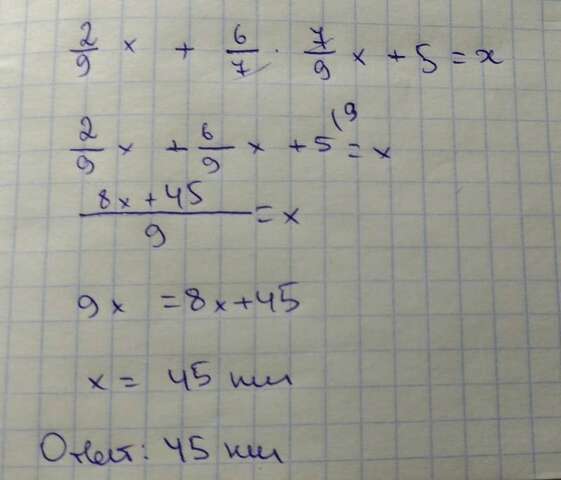 2/9 x + 6/7 · 7/9 x + 5 = x
2/9 x + 6/9 x + 5 (9 = x
8x + 45 / 9 = x
9x = 8x + 45
x = 45 км
Ответ: 45 км